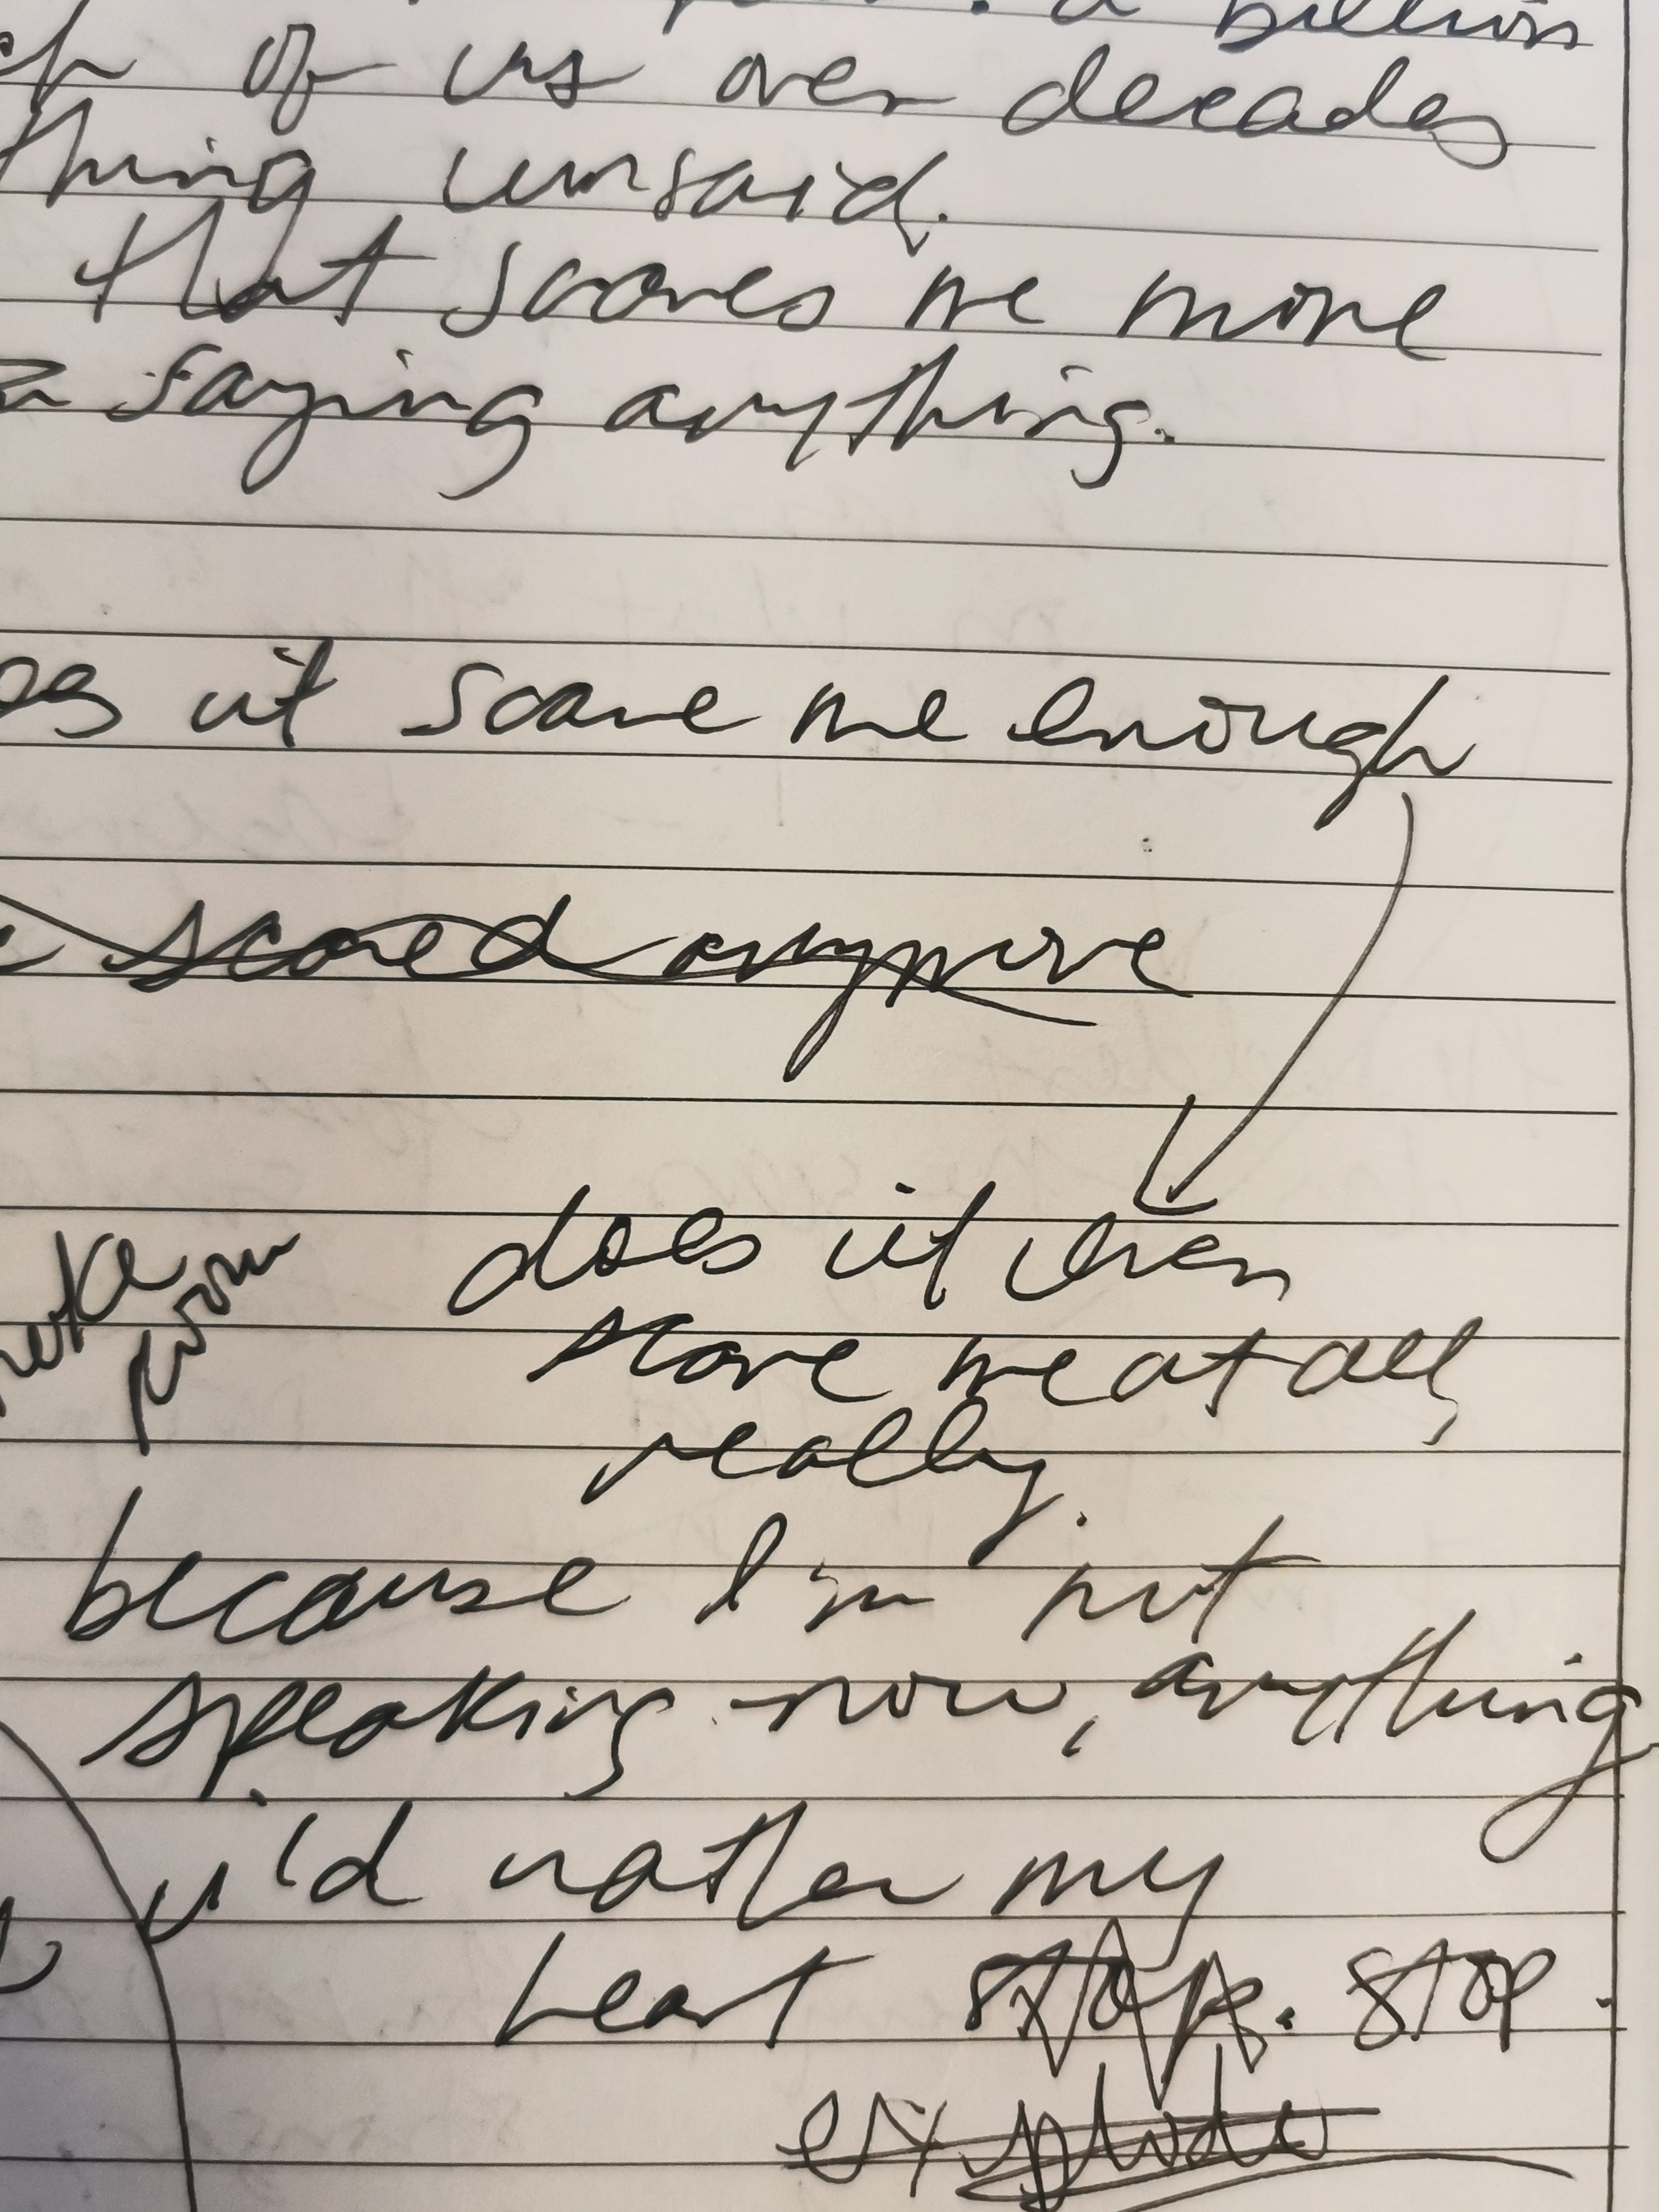 a billion
of us over decades
thing unsaid.
that scares me more
saying anything.
it scare me enough
scared anymore
does it even
scare me at all,
really.
because I'm not
speaking now, anything
i'd rather my
heart stops. stop.
explode